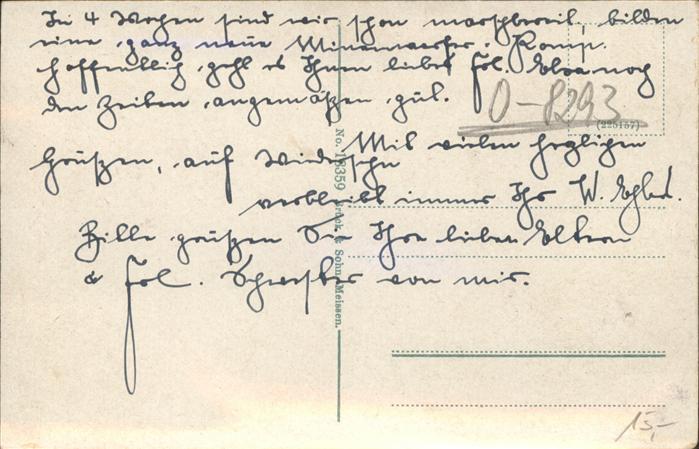 In 4 Wochen sind wir schon marschbereit, bilden
eine ganz neue Minenwerfer-Komp.
Hoffentlich geht es Ihnen liebes Frl. Elsa noch
den Zeiten angemaßen gut.
O-8293
(225157)
Mit vielen herzlichen
Grüßen, auf Wiedersehn
verbleibt immer Ihr W.
Bitte grüßen Sie Ihre lieben Eltern
& Frl. Schwester von mir.
No. 18359 Brück & Sohn, Meissen.
15,-